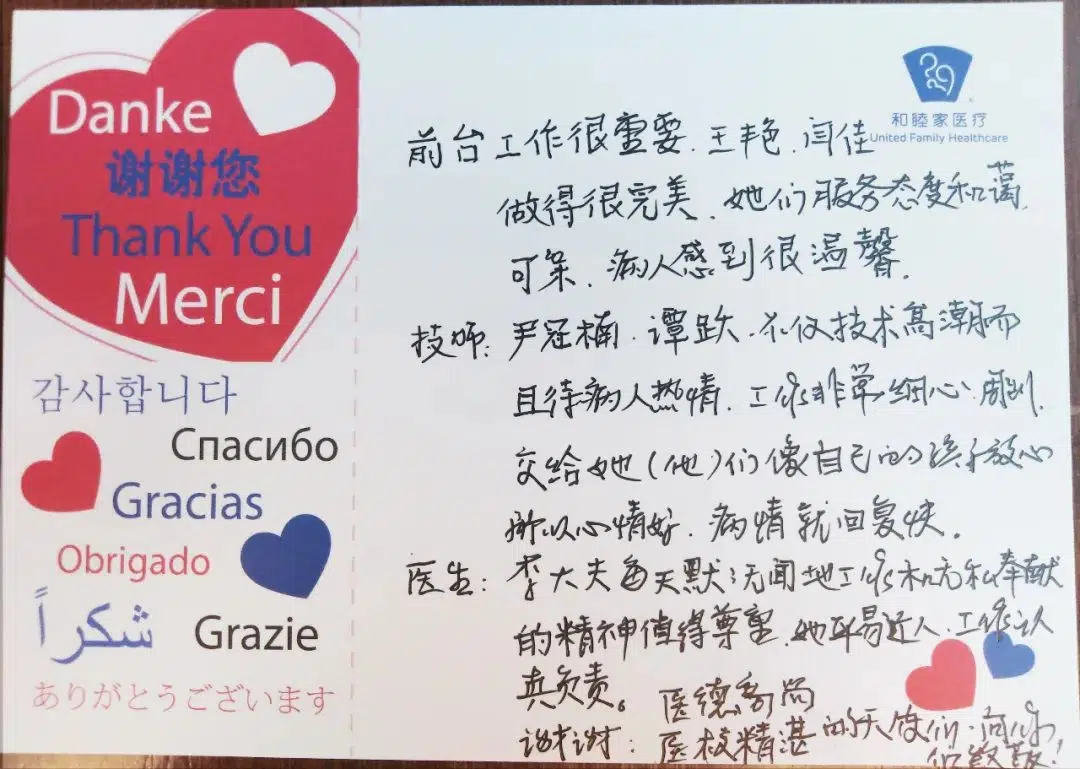 Danke
谢谢您
Thank You
Merci
감사합니다
Спасибо
Gracias
Obrigado
شكراً
Grazie
ありがとうございます
和睦家医疗
United Family Healthcare
前台工作很重要、王艳、闫佳
做得很完美、她们服务态度和蔼、
可亲、病人感到很温馨。
技师：尹冠楠、谭跃、不仅技术高潮而
且待病人热情、工作非常细心、周到、
交给她(他)们像自己的孩子放心
所以心情好、病情就回复快。
医生：李大夫每天默默无闻地工作和无私奉献
的精神值得尊重、她平易近人、工作认
真负责。
医德高尚
谢谢：医技精湛的天使们、向你
们致敬！